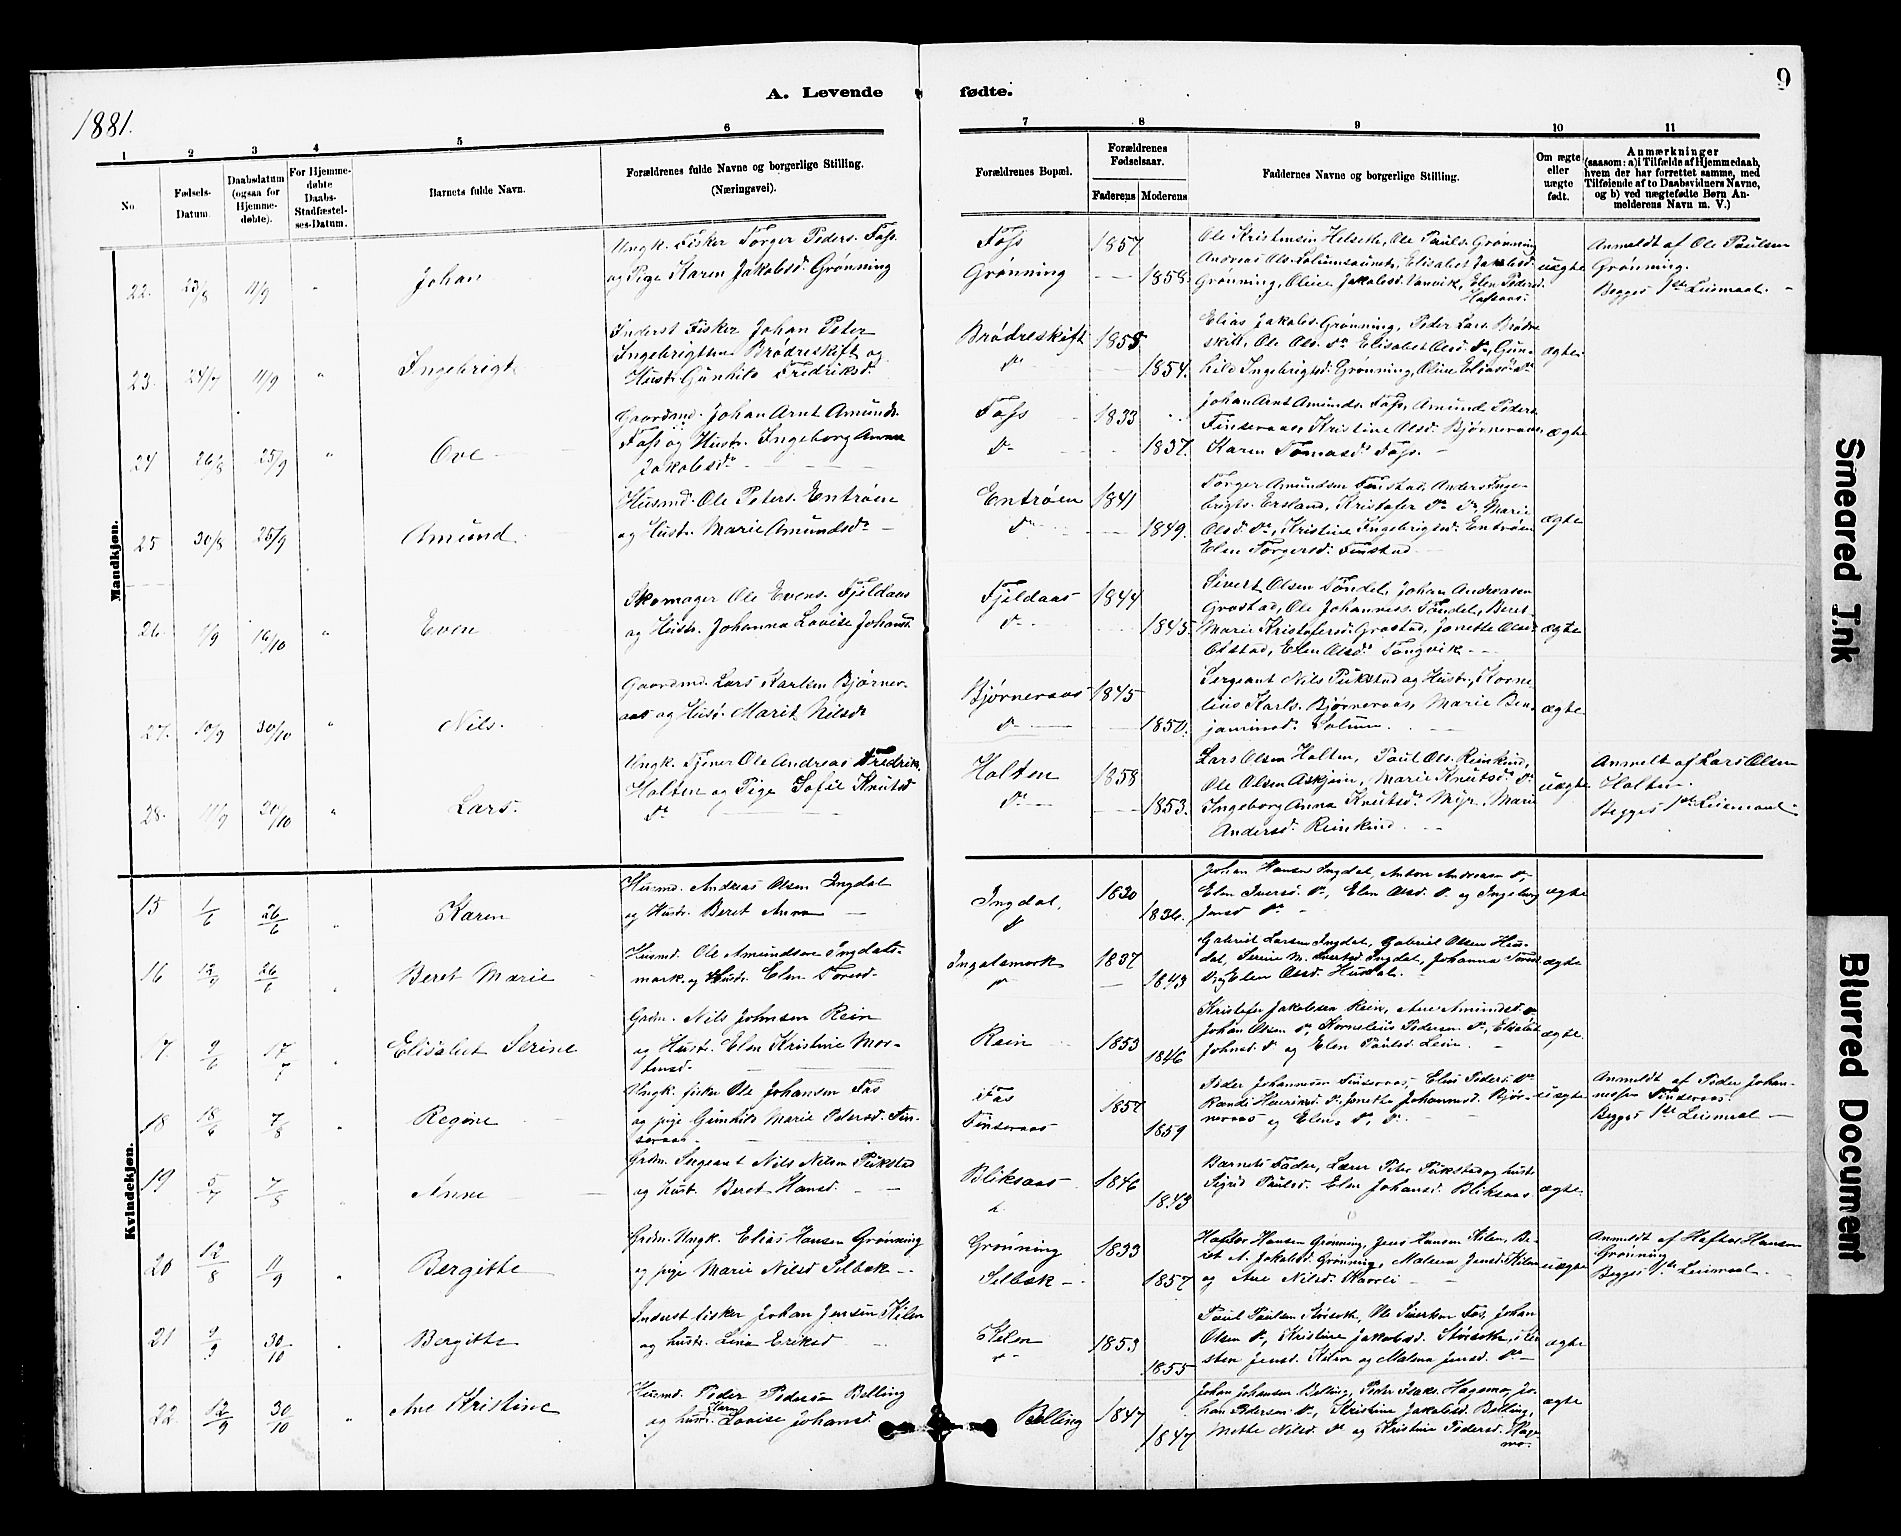 1881.
A. Levende fødte.
9
1 2 3 4 5 6 7 8 9 10 11
No.
Fødsels-Datum.
Daabsdatum (ogsaa for Hjemmedøbte).
For Hjemmedøbte Daabs-Stadfæstelses-Datum.
Barnets fulde Navn.
Forældrenes fulde Navne og borgerlige Stilling.
(Næringsvei).
Forældrenes Bopæl.
Forældrenes Fødselsaar.
Faderens Moderens
Faddernes Navne og borgerlige Stilling.
Om ægte eller uægte født.
Anmærkninger
(saasom: a) i Tilfælde af Hjemmedaab, hvem der har forrettet samme, med Tilføiende af to Daabsvidners Navne, og b) ved uægtefødte Børn Anmelderens Navn m. V.)
Mandkjøn.
22. 23/8 11/9 " Johan
Ungk. Fisker Torger Peders. Foss
og Pige Karen Jakobsd. Grønning
Foss 1857
Grønning 1858.
Ole Kristensen Helseth, Ole Pauls. Grønning
Andreas Ols. Elisabet Jakobsd.
Grønning, Oline Jakobsd. Vanvik, Elen Pedersd.
uægte
Anmeldt af Ole Paulsen
Grønning.
Begges 1ste Leiermaal.
23. 24/7 11/9 " Ingebrigt
Inderst Fisker Johan Peter
Ingebrigtsen Brødreskift og
Hustr. Gunhild Fredriksd.
Brødreskift 1855
do 1854.
Elias Jakobs. Grønning, Peder Lars. Brødre
skift, Ole Ols. do Elisabet Olsd. do, Gun-
hild Ingebrigtsd. Grønning, Oline Eliasd. do
ægte
24 26/8 25/9 " Ove
Gaardmd. Johan Arnt Amunds.
Foss og Hustr. Ingeborg Anna
Jakobsdr
Foss 1833
do 1837.
Johan Arnt Amunds. Foss, Amund Peders.
Finseraas, Kristine Olsd. Bjørneraas
Karen Tomasd. Foss.
ægte
25 30/8 25/9 " Amund
Husmd. Ole Peters. Entrøen
og Hustr. Marie Amundsdr
Entrøen 1841
do 1849.
Torger Amundsen Finstad, Anders Inge-
brigts. Ersland, Kristofer do do, Marie
Olsd. do, Kristine Ingebrigtsd. Entrøen
Elen Torgersd. Finstad
ægte
26. 1/9 16/10 " Even
Skomager Ole Evens. Fjeldaas
og Hustr. Johanna Lovise Johansd.
Fjeldaas 1844
do 1845.
Sivert Olsen Tøndel, Johan Andreasen
Grostad, Ole Johanness. Tøndel, Beret
Marie Kristofersd. Grostad, Jonette Olsd.
Elen Olsd. Tongvik
ægte
27. 10/9 30/10 " Nils.
Gaardmd. Lars Karlsen Bjørner-
aas og Hust. Marit Nilsdr
Bjørneraas 1845
do 1850.
Sergeant Nils Pukstad og Hustr., Korne-
lius Karls. Bjørneraas, Marie Ben-
jaminsd. Solum.
ægte
28. 11/9 30/10 " Lars.
Ungk. Tjener Ole Andreas Fredrik.
Holten og Pige Sofie Knutsd
do
Holten 1858
do 1853.
Lars Olsen Holten, Paul Ols. Reinkind,
Ole Olsen Askjem, Marie Knutsd. do
Ingeborg Anna Knutsdr Myr, Marie
Andersd. Reinkind.
uægte
Anmeldt af Lars Olsen
Holten.
Begges 1ste Leiermaal.
Kvindekjøn.
15 1/6 26/6 " Karen
Husmd. Andreas Olsen Ingdal
og Hustr. Beret Anna
Ingdal, 1830
do 1836.
Johan Hansen Ingdal, Anton Andreasen do
Elen Iversd. do, Elen Olsd. do og Ingeborg
Jensd do
ægte
16 26/6 " Beret Marie
Husmd. Ole Amundsen Ingdals-
mark. og Hustr. Elen Toresd.
Ingdalsmark 1837
do 1843
Gabriel Larsen Ingdal, Gabriel Olsen Hus-
dal, Serine M. Ingdal, Johanna
Elen Olsd. Husdal.
ægte
17. 9/6 17/7 " Elisabet Serine
Grdm. Nils Johnsen Rein
og Hustr. Elen Kristine Mor-
tensd.
Rein 1853
1846
Kristofer Jakobsen Rein, Ane Amundsd. do
Johan Olsen do, Kornelius Pedersen do, Elisabet
Johnsd. do og Elen Paulsd. Lein
ægte
18 18/6 7/8 " Regine
Ungk. fisker Ole Johansen Fos
og pige Gunhild Marie Pedersd. Fin-
seraas
Fos 1857
Finseraas 1859
Peder Johannesen Finseraas, Elias Peders. do
Randi Henriksd. do, Jonetta Johannesd. Bjør-
neraas og Elen do, do.
uægte
Anmeldt af Peder Johan-
nessen Finseraas.
Begges 1ste Leiermaal
19 5/7 7/8 " Anne
Grdm. Sergeant Nils Nilsen Pukstad
og hust. Beret Hansd.
Bliksaas 1846
1843
Barnets Fader, Lærer Peter Pukstad og hust.
Sigrid Paulsd. Elen Johansd. Bliksaas
ægte
20 12/8 11/9 " Bergitte
Grdm. Ungk. Elias Hansen Grønning
og pige Marie Nilsd Selbæk
Grønning 1833
Selbæk 1857
Haftor Hansen Grønning, Jens Hansen Kilen, Be-
ret A. Jakobsd. Grønning, Malena Jensd. Kilen
og Ane Nilsd.
uægte
Anmeldt af Haftor Hansen
Grønning
Begges 1ste Leiermaal
21 9/9 30/10 " Bergitte
Inderst fisker Johan Jensen Kilen
og hustr. Lina Eriksd
Kilen 1853
do 1855
Paul Paulsen Ole Fos, Johan
Olsen do, Kristine Jakobsd. Kir-
sten Jensd. Kilen og Malena Jensd. do
ægte
22 12/9 30/10 " Ane Kristine
Husmd. Peder Pedersen Belling
og hust. Karen Lovise Johansd.
Belling 1847
1847
Johan Johansen Belling, Peder Isaks. Hagemo, Jo-
han Pedersen do, Kristine Jakobsd. Belling,
Mette Nilsd. do og Kristine Pedersd. Hage-
mo.
ægte
Smeared Ink
Blurred Document